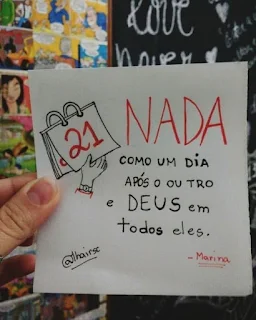 Love
never
21
NADA
COMO UM DIA
APÓS O OUTRO
e DEUS em
todos eles.
@thairsc
- Marina